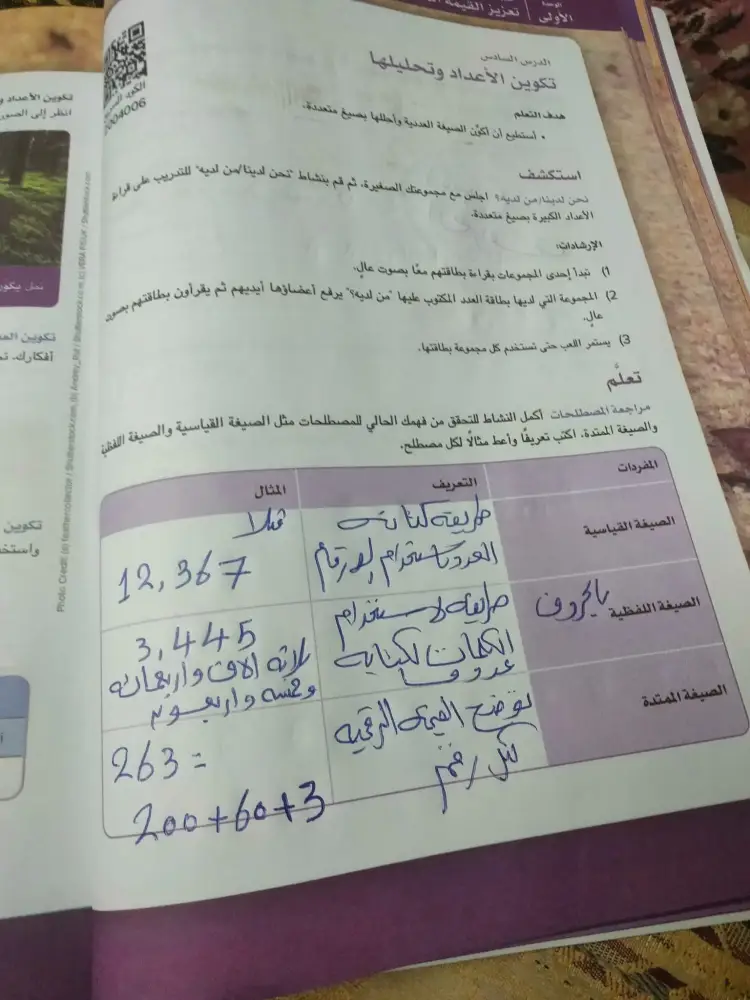 الأولى
تعزيز القيمة
الدرس السادس
تكوين الأعداد وتحليلها
هدف التعلم
• أستطيع أن أكوّن الصيغة العددية وأحللها بصيغ متعددة.
استكشف
نحن لدينا/من لديه؟ اجلس مع مجموعتك الصغيرة، ثم قم بنشاط "نحن لدينا/من لديه" للتدريب على قراءة
الأعداد الكبيرة بصيغ متعددة.
الإرشادات:
1) تبدأ إحدى المجموعات بقراءة بطاقتهم معًا بصوت عالٍ.
2) المجموعة التي لديها بطاقة العدد المكتوب عليها "من لديه؟" يرفع أعضاؤها أيديهم ثم يقرأون بطاقتهم بصوت
عالٍ.
3) يستمر اللعب حتى تستخدم كل مجموعة بطاقتها.
تعلَّم
مراجعة المصطلحات أكمل النشاط للتحقق من فهمك الحالي للمصطلحات مثل الصيغة القياسية والصيغة اللفظية
والصيغة الممتدة. اكتب تعريفًا وأعط مثالًا لكل مصطلح.
المفردات التعريف المثال
الصيغة القياسية
طريقة كتابة
العدد باستخدام الارقام
مثلا
12,367
الصيغة اللفظية بالحروف
طريقة لاستخدام
الكلمات لكتابة
3,445
ثلاثة الاف واربعمائة
وخمسة واربعون
الصيغة الممتدة
توضح القيمة الرقمية
لكل رقم
263 =
200+60+3
الكود السريع
004006
تكوين الأعداد و
انظر إلى الصور
نحل يكون
تكوين العد
أفكارك.
تكوين
واستخد